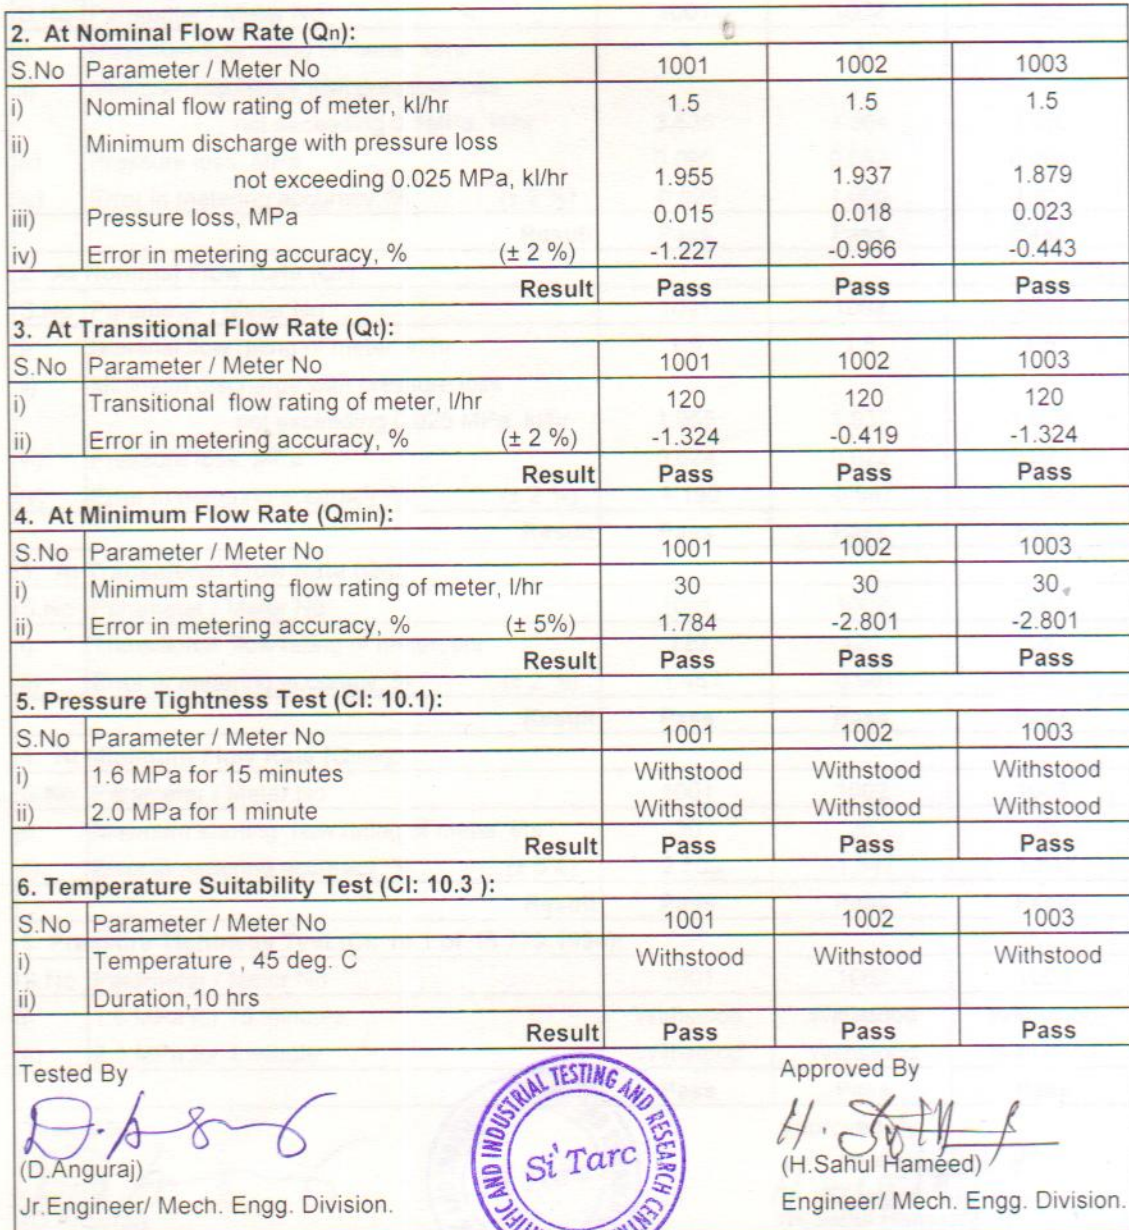 2. At Nominal Flow Rate (Qn):
S.No Parameter / Meter No 1001 1002 1003
i) Nominal flow rating of meter, kl/hr 1.5 1.5 1.5
ii) Minimum discharge with pressure loss
not exceeding 0.025 MPa, kl/hr 1.955 1.937 1.879
iii) Pressure loss, MPa 0.015 0.018 0.023
iv) Error in metering accuracy, % (± 2 %) -1.227 -0.966 -0.443
Result Pass Pass Pass
3. At Transitional Flow Rate (Qt):
S.No Parameter / Meter No 1001 1002 1003
i) Transitional flow rating of meter, l/hr 120 120 120
ii) Error in metering accuracy, % (± 2 %) -1.324 -0.419 -1.324
Result Pass Pass Pass
4. At Minimum Flow Rate (Qmin):
S.No Parameter / Meter No 1001 1002 1003
i) Minimum starting flow rating of meter, l/hr 30 30 30
ii) Error in metering accuracy, % (± 5%) 1.784 -2.801 -2.801
Result Pass Pass Pass
5. Pressure Tightness Test (Cl: 10.1):
S.No Parameter / Meter No 1001 1002 1003
i) 1.6 MPa for 15 minutes Withstood Withstood Withstood
ii) 2.0 MPa for 1 minute Withstood Withstood Withstood
Result Pass Pass Pass
6. Temperature Suitability Test (Cl: 10.3 ):
S.No Parameter / Meter No 1001 1002 1003
i) Temperature , 45 deg. C Withstood Withstood Withstood
ii) Duration,10 hrs
Result Pass Pass Pass
Tested By Approved By
(D.Anguraj) (H.Sahul Hameed)
Jr.Engineer/ Mech. Engg. Division. Engineer/ Mech. Engg. Division.
AND INDUSTRIAL TESTING AND RESEARCH
Si'Tarc